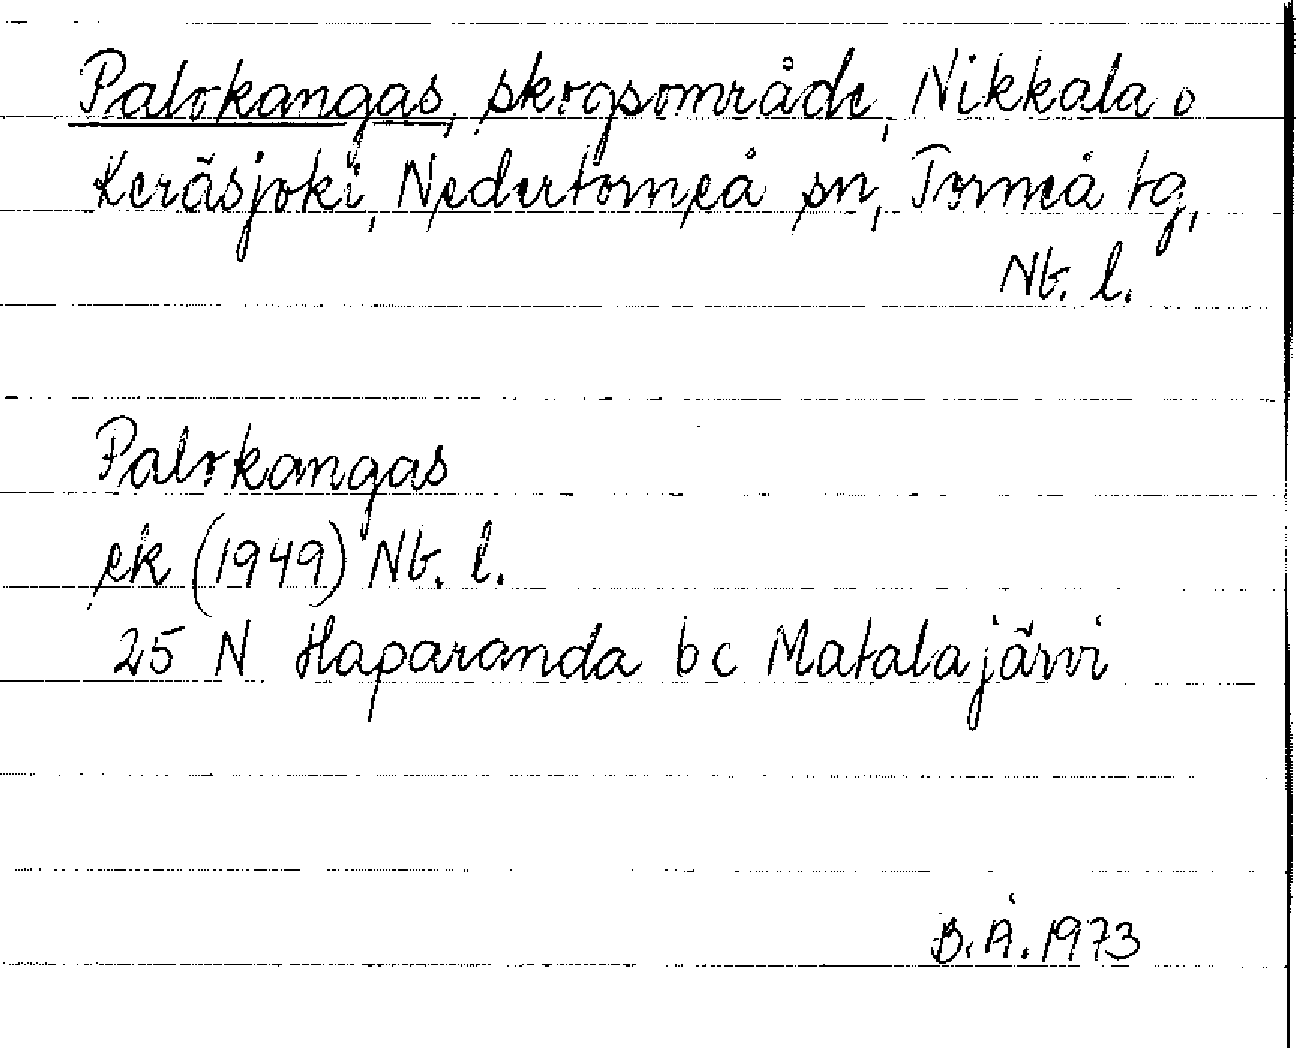 Palokangas, skogsområde, Nikkala o
Keräsjoki, Nedertorneå sn, Torneå tg,
Nb. l.
Palokangas
ek (1949) Nb. l.
25 N Haparanda bc Matalajärvi
B.Å. 1973